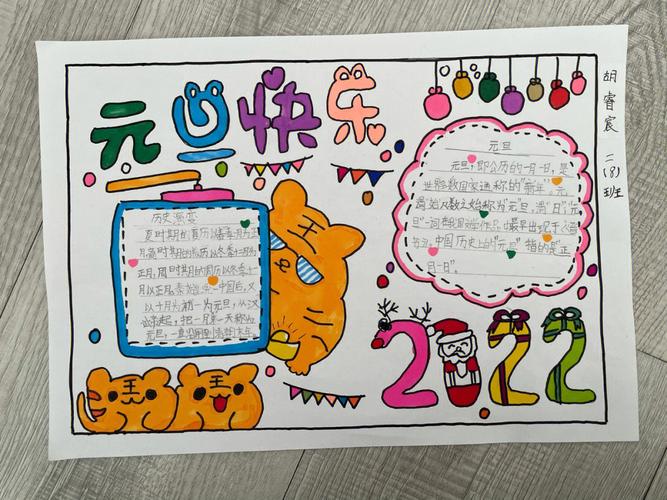 元旦快乐
胡睿宸
二(8)班
元旦
元旦,即公历的一月一日,是
世界多数国家通称的"新年"。元,
谓始,凡数之始称为"元";旦,谓"日";"元
旦"
最早出现于
中国历史上的"元旦"指的是"正
月一日"。
历史演变
夏时期的夏历以春季一月为正
月,商时期的殷历以冬季十二月为
正月,周时期的周历以冬季十一
月以正月。秦始皇统一中国后,又
以十月初一为元旦,从汉
起,把一月第一天称为
元旦,一直沿用到
王
王
2022